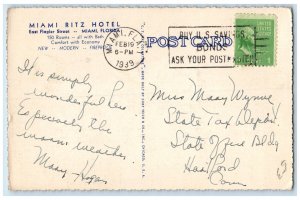 MIAMI RITZ HOTEL
East Flagler Street - MIAMI, FLORIDA
150 Rooms - all with Bath
Comfort with Economy
NEW - MODERN - FIREPROOF
MIAMI, FLA.
FEB 19
6-PM
1939
POST CARD
BUY U.S. SAVINGS
BONDS
ASK YOUR POSTMASTER
It is simply
wonderful here
Especially the
warm weather.
Mary
Miss Mary Wynne
State Tax Dept.
State Office Bldg
Hartford
Conn